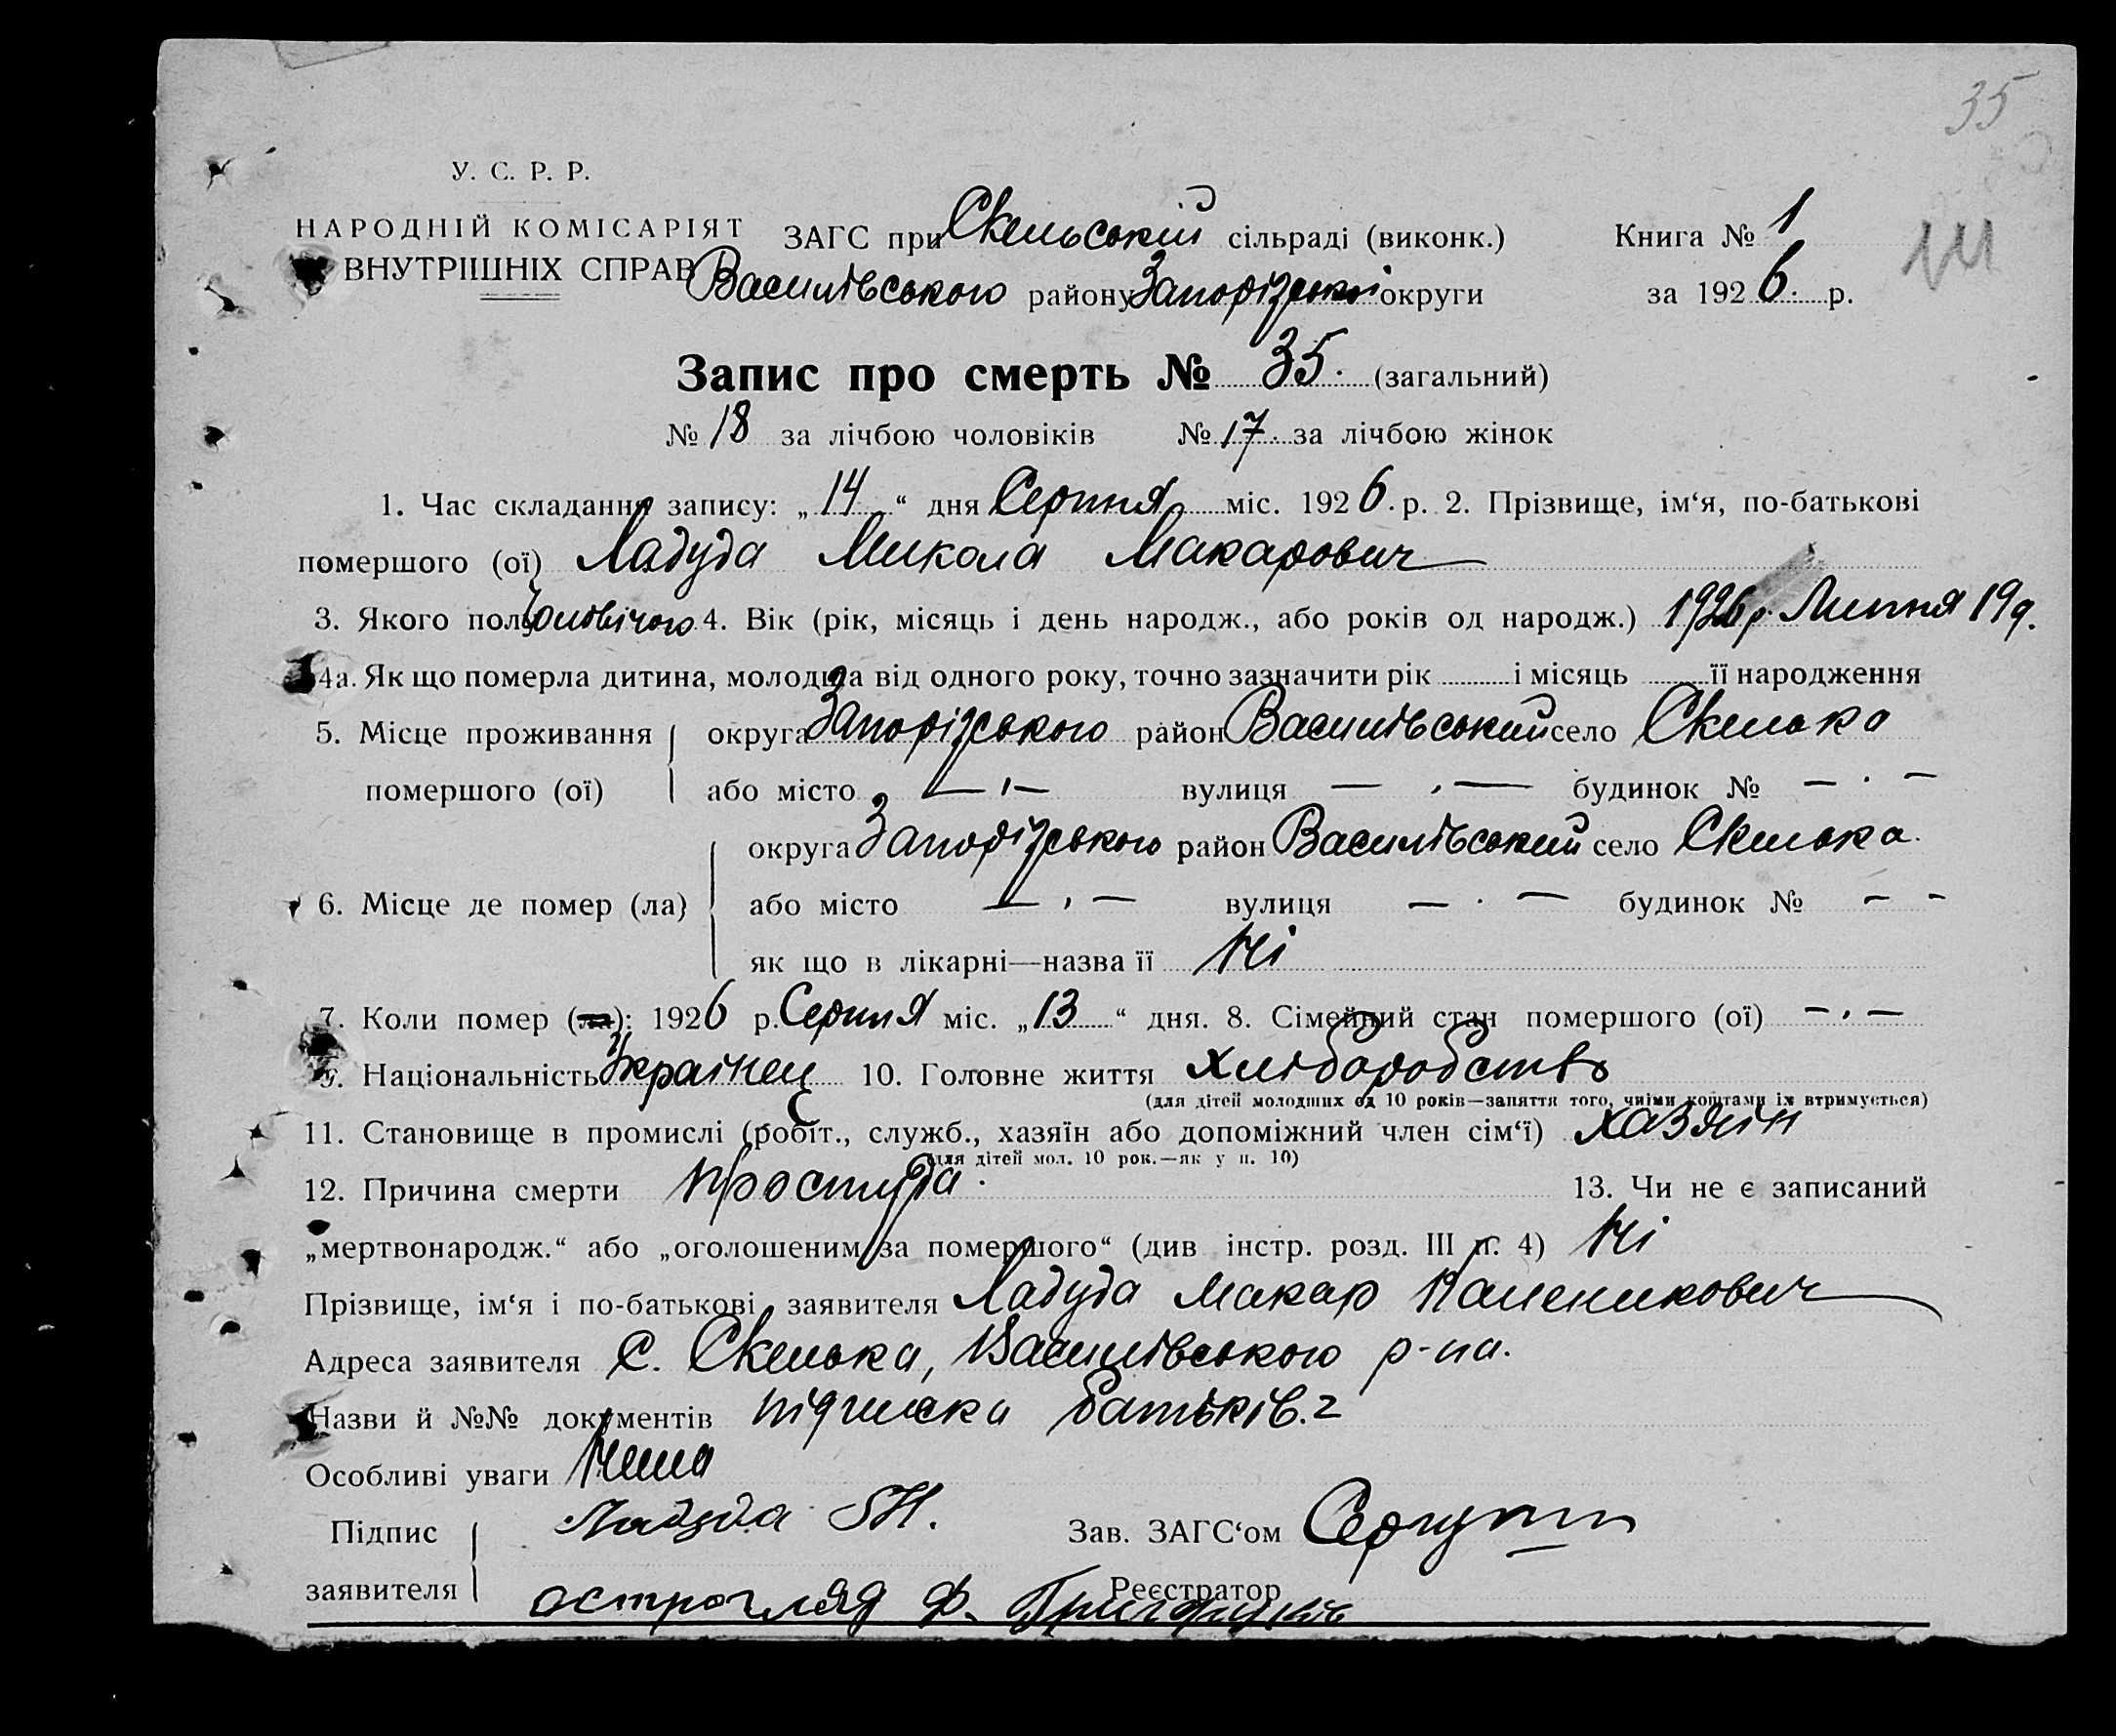 35
У. С. Р. Р.
НАРОДНІЙ КОМІСАРІЯТ
ВНУТРІШНІХ СПРАВ
ЗАГС при Скельській сільраді (виконк.)
Василівського району Запорізької округи
Книга № 1
за 1926 р.
Запис про смерть № 35. (загальний)
№ 18 за лічбою чоловіків № 17. за лічбою жінок
1. Час складання запису: „14“ дня Серпня міс. 1926. р. 2. Прізвище, ім‘я, по-батькові
помершого (ої) Ладуда Микола Макарович
3. Якого полу Чоловічого 4. Вік (рік, місяць і день народж., або років од народж.) 1926 р. Липня 19 д.
4а. Як що померла дитина, молодша від одного року, точно зазначити рік і місяць її народження
5. Місце проживання округа Запорізського район Василівський село Скелька
помершого (ої) або місто — „ — вулиця — „ — будинок № — „ —
округа Запорізського район Василівський село Скелька.
6. Місце де помер (ла) або місто — „ — вулиця — „ — будинок № — —
як що в лікарні—назва її Ні
7. Коли помер (ла): 1926 р. Серпня міс. „13“ дня. 8. Сімейний стан помершого (ої) — „ —
9. Національність Українец 10. Головне життя Хліборобство
(для дітей молодших од 10 років—заняття того, чиїми коштами їх втримується)
11. Становище в промислі (робіт., служб., хазяїн або допоміжний член сім‘ї) хазяїн
(для дітей мол. 10 рок.—як у п. 10)
12. Причина смерти простуда. 13. Чи не є записаний
„мертвонародж.“ або „оголошеним за помершого“ (див інстр. розд. III п. 4) Ні
Прізвище, ім‘я і по-батькові заявителя Ладуда Макар Каленикович
Адреса заявителя С. Скелька, Василівського р-на.
Назви й №№ документів підписка батьків.
Особливі уваги Нема
Підпис Ладуда Зав. ЗАГС‘ом
заявителя острогляд Ф. Реєстратор